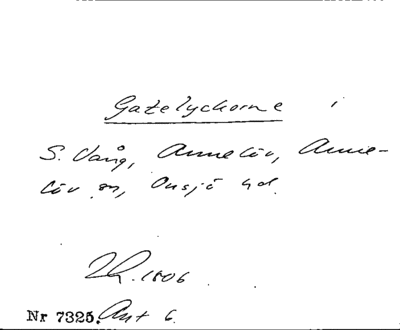 Gatelyckorne i
S. Vång, Annelöv, Anne-
löv sn, Onsjö hd.
LR. 1806
Nr 7325. Akt 6.